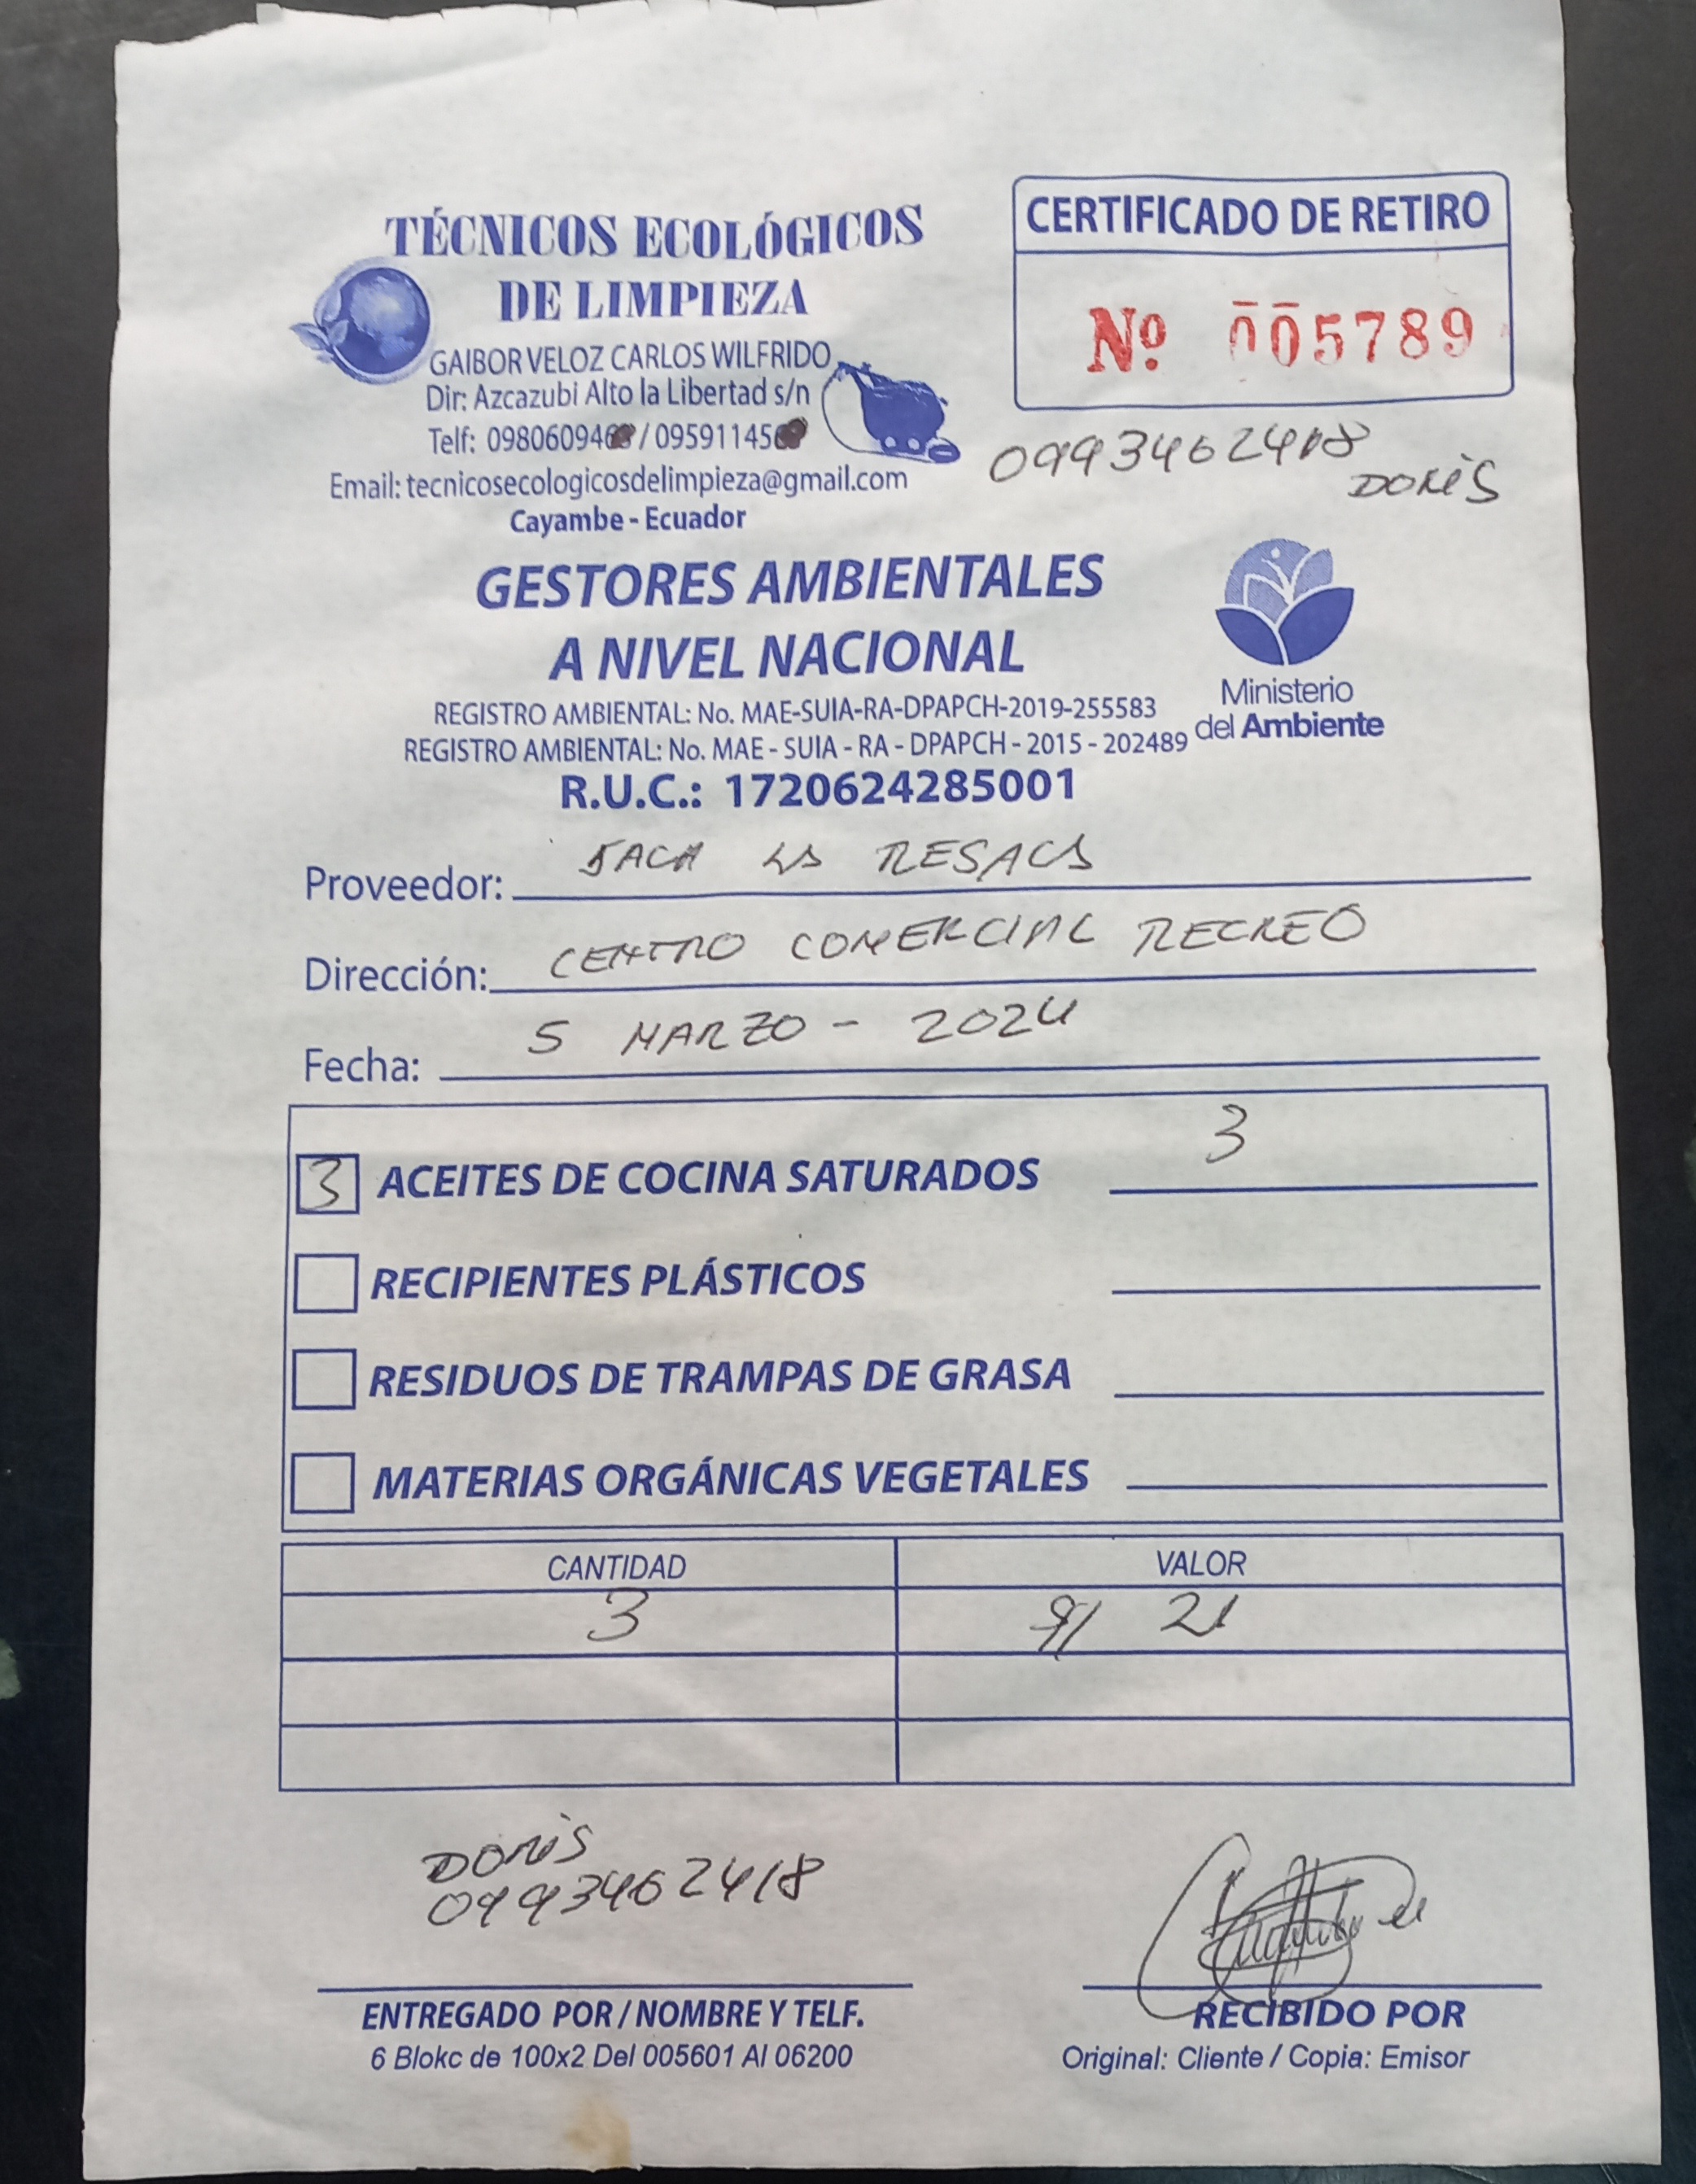 TÉCNICOS ECOLÓGICOS
DE LIMPIEZA
GAIBOR VELOZ CARLOS WILFRIDO
Dir: Azcazubi Alto la Libertad s/n
Telf: 098060946 / 095911456
Email: tecnicosecologicosdelimpieza@gmail.com
Cayambe - Ecuador
CERTIFICADO DE RETIRO
Nº 005789
0993462418
DORIS
GESTORES AMBIENTALES
A NIVEL NACIONAL
REGISTRO AMBIENTAL: No. MAE-SUIA-RA-DPAPCH-2019-255583
REGISTRO AMBIENTAL: No. MAE - SUIA - RA - DPAPCH - 2015 - 202489
R.U.C.: 1720624285001
Ministerio
del Ambiente
Proveedor: SACA LA RESACA
Dirección: CENTRO COMERCIAL RECREO
Fecha: 5 MARZO - 2024
3 ACEITES DE COCINA SATURADOS 3
RECIPIENTES PLÁSTICOS
RESIDUOS DE TRAMPAS DE GRASA
MATERIAS ORGÁNICAS VEGETALES
CANTIDAD VALOR
3 21
DORIS
0993462418
ENTREGADO POR / NOMBRE Y TELF.
6 Blokc de 100x2 Del 005601 Al 06200
RECIBIDO POR
Original: Cliente / Copia: Emisor